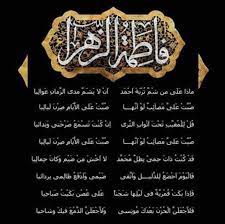 فاطمة الزهراء
ماذا على من شم تربة أحمد ان لا يشم مدى الزمان غواليا
صبت علي مصائب لو أنها صبت على الأيام صرن لياليا
قل للمغيب تحت أثواب الثرى إن كنت تسمع صرختي وندائيا
صبت علي مصائب لو أنها صبت على الأيام صرن لياليا
قد كنت ذات حمى بظل محمد لا أخش من ضيم وكان حماليا
فاليوم أخضع للذليل وأتقي ضيمي وأدفع ظالمي بردائيا
فإذا بكت قمرية في ليلها شجنا على غصن بكيت صباحيا
فلأجعلن الحزن بعدك مونسي ولأجعلن الدمع فيك وشاحيا